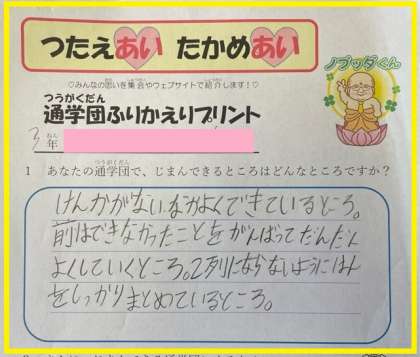 つたえあい たかめあい
♡みんなの思いを集会やウェブサイトで紹介します！♡
ノブッダくん
つうがくだん
通学団ふりかえりプリント
3年
1 あなたの通学団で、じまんできるところはどんなところですか？
けんかがない。なかよくできているところ。
前はできなかったことをがんばってだんだん
よくしていくところ。2列にならないようにはん
をしっかりまとめているところ。